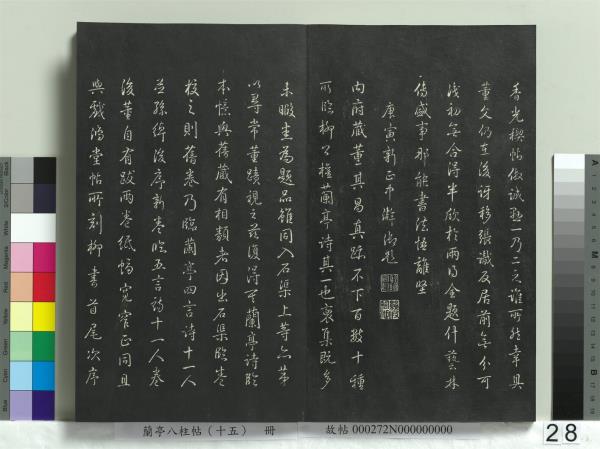 香光禊帖倣誠懸一乃二之誰所然幸其
董欠仍在後訝移張識反居前無分可
淺初無合得半欣於兩為全題什藝林
傳盛事那能書法悟離堅
庚寅新正中澣御題
內府藏董其昌真跡不下百數十種
所臨柳公權蘭亭詩其一也裒集既多
未暇盡為題品雖同入石渠上等亦第
以尋常董蹟視之茲復得其蘭亭詩臨
本憶與舊藏有相類者因出石渠臨卷
校之則舊卷乃臨蘭亭四言詩十一人
並孫綽後序新卷臨五言詩十一人卷
後董自有跋兩卷紙幅寬窄正同且
與戲鴻堂帖所刻柳書首尾次序
蘭亭八柱帖（十五） 冊
故帖 000272N000000000
28
Black
White
Magenta
Red
Yellow
Green
Cyan
Blue
A
M
B